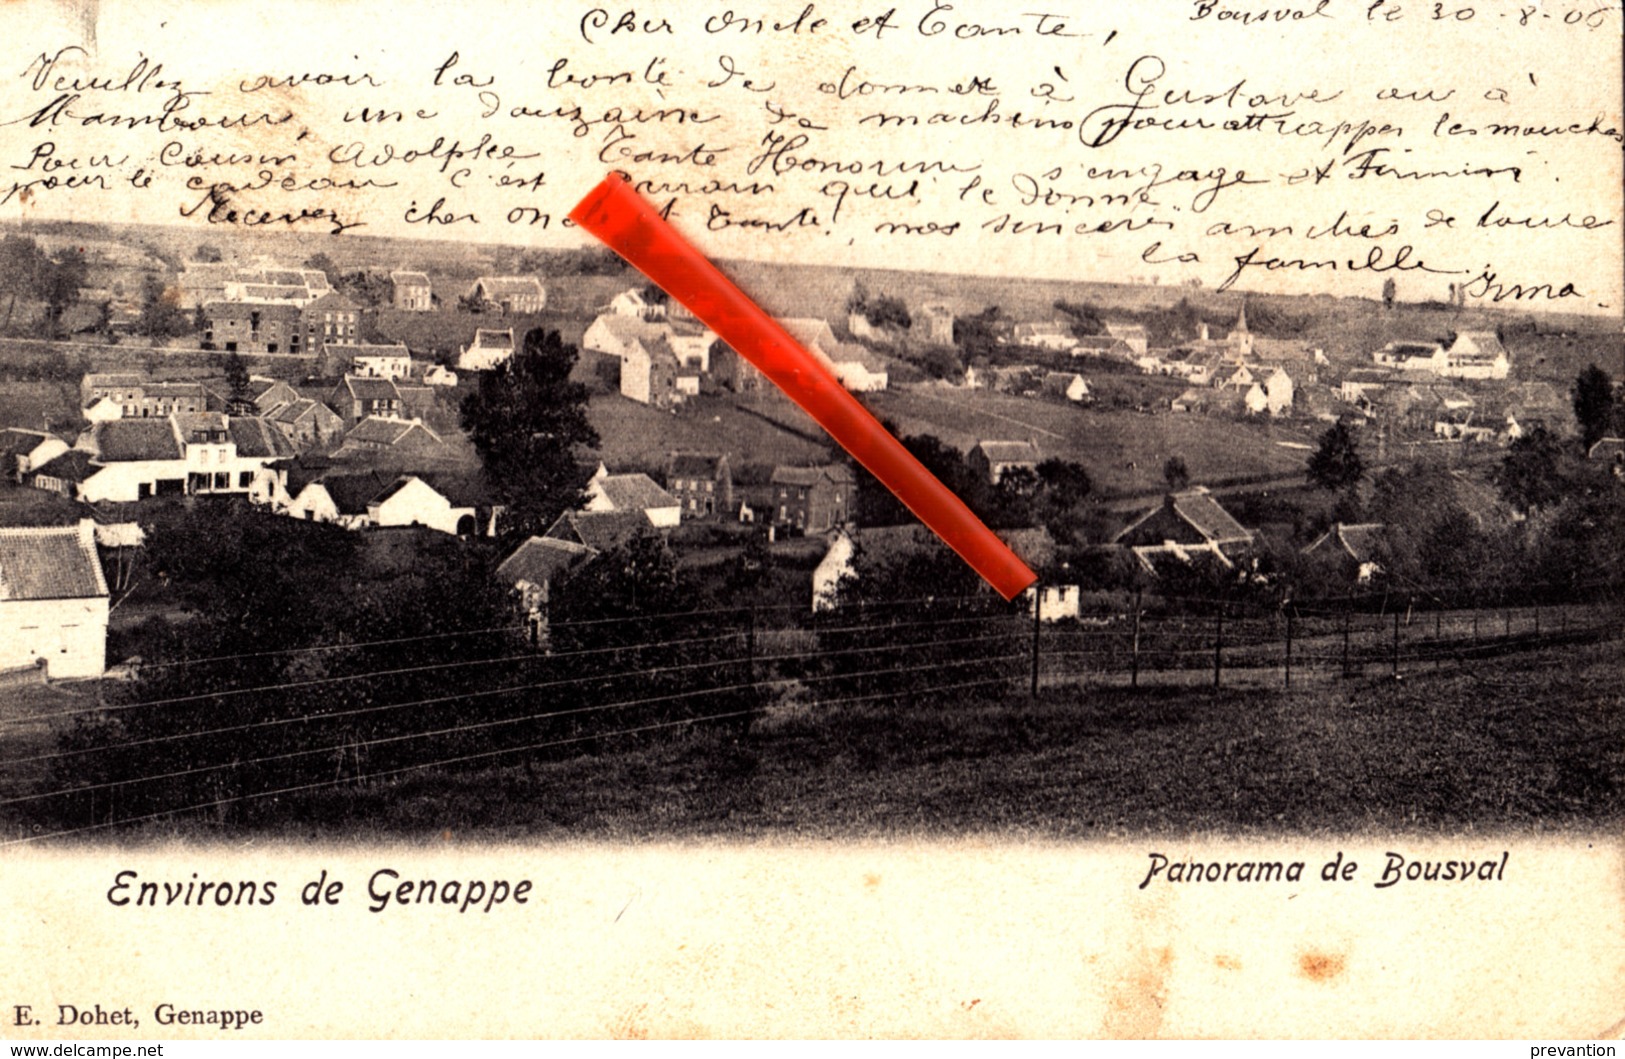 Bousval le 30-8-06
Cher Oncle et Tante,
Veuillez avoir la bonté de donner à Gustave ou à
Mambour, une douzaine de machins pour attrapper les mouches
Pour Cousin Adolphe Tante Honorine s'engage et Firmin.
pour le cadeau c'est Parrain qui le donne.
Recevez cher oncle et Tante, nos sincères amitiés de toute
la famille.
Irma.
Environs de Genappe
Panorama de Bousval
E. Dohet, Genappe
www.delcampe.net
prevantion